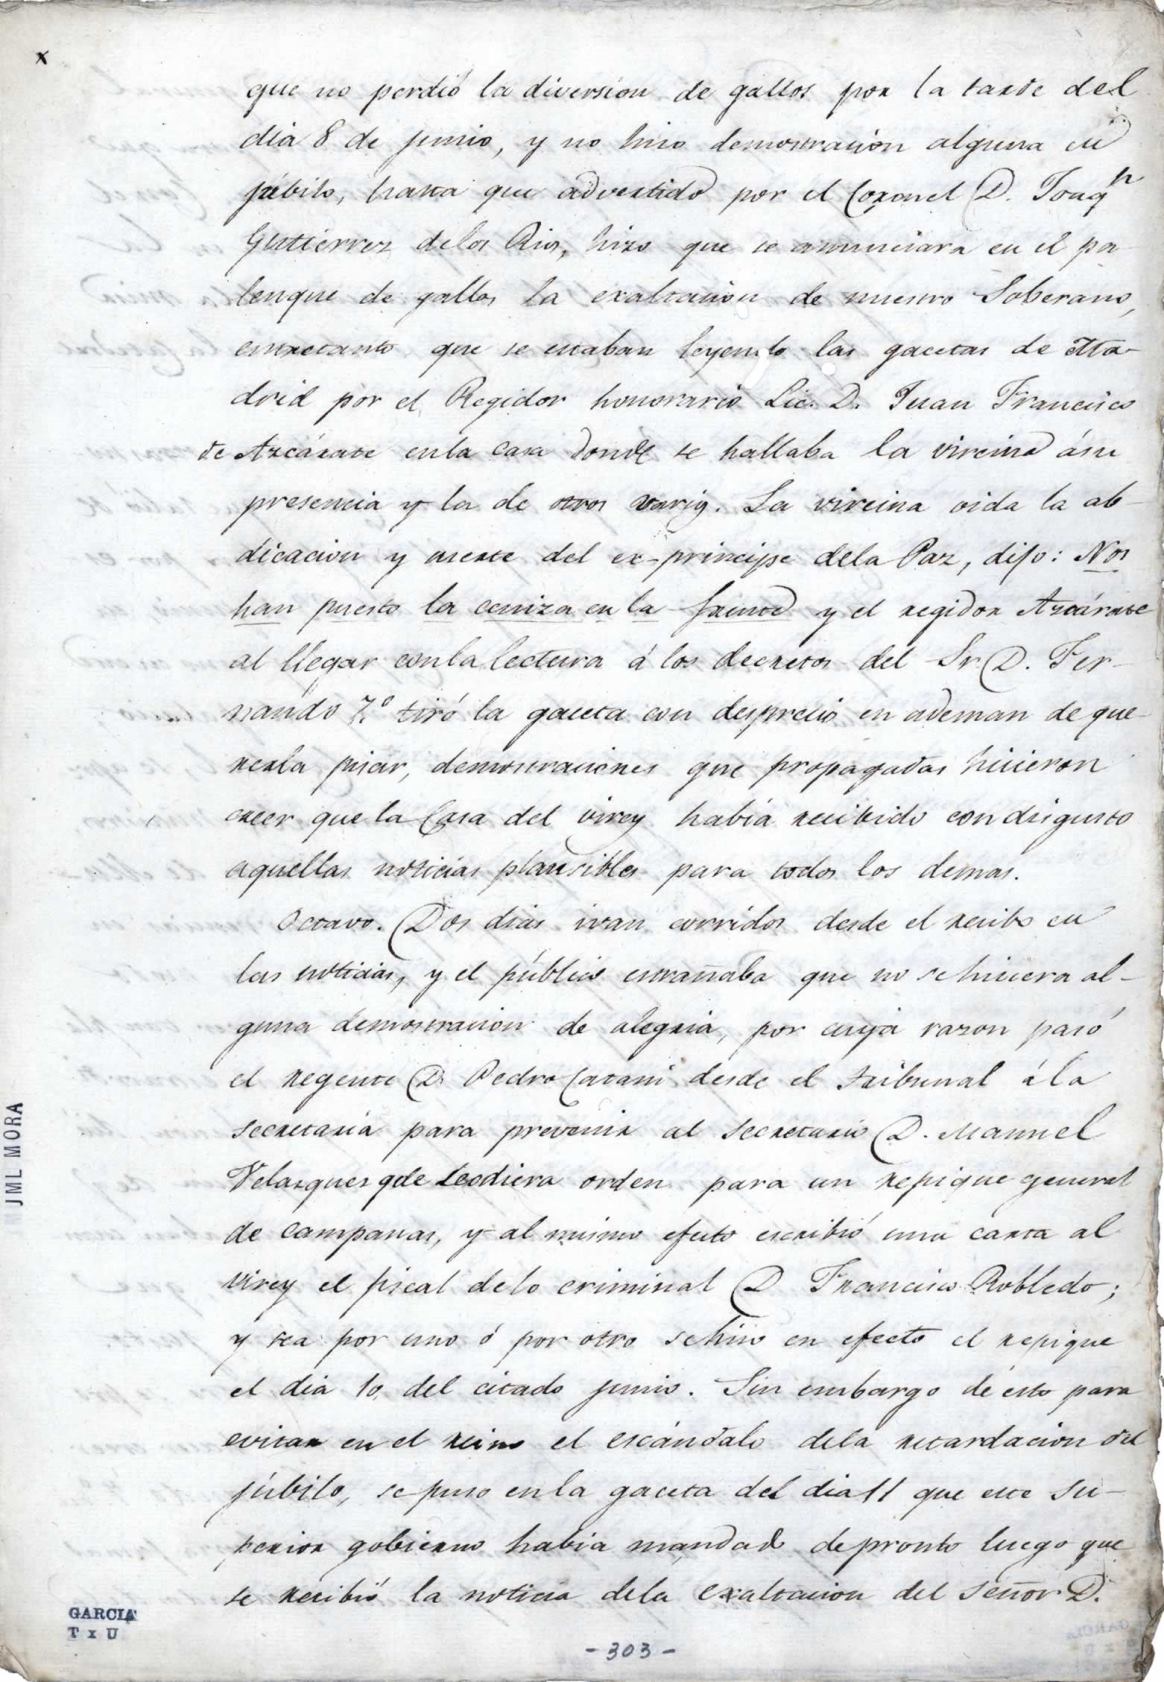 x
que no perdió la diversion de gallos por la tarde del
dia 8 de junio, y no hiso demostracion alguna de
júbilo, hasta que advertido por el Coronel D. Joaqn
Gutiérrez delos Rios, hizo que se anunciara en el pa-
lenque de gallos la exaltacion de nuestro Soberano,
entretanto que se estaban leyendo las gacetas de Ma-
drid por el Regidor honorario Lic. D. Juan Francisco
de Azcárate enla casa donde se hallaba la vireina ásu
presencia y la de otros varios. La vireina oida la ab-
dicacion y arresto del ex-principe dela Paz, dijo: Nos
han puesto la ceniza en la frente y el regidor Azcárate
al llegar conla lectura á los decretos del Sr. D. Fer-
nando 7.º tiró la gaceta con desprecio en ademan de que-
rerla pisar, demostraciones que propagadas hicieron
creer que la Casa del virey había recibido con disgusto
aquellas noticias plausibles para todos los demas.
Octavo. Dos dias ivan corridos desde el recibo de
las noticias, y el público estrañaba que no se hiciera al-
guna demostracion de alegria, por cuya razon pasó
el regente D. Pedro Catani desde el tribunal á la
secretaria para prevenir al secretario D. Manuel
Velasquez qde leodiera orden para un repique general
de campanas, y al mismo efecto escribió una carta al
virey el fiscal delo criminal D. Francisco Robledo;
y sea por uno ó por otro sehizo en efecto el repique
el dia 10 del citado junio. Sin embargo de esto para
evitar en el reino el escándalo dela retardacion del
júbilo, se puso enla gaceta del dia 11 que este Su-
perior gobierno habia mandado depronto luego que
se recibió la noticia dela exaltacion del Señor D.
JML MORA
GARCIA
T x U
- 303 -